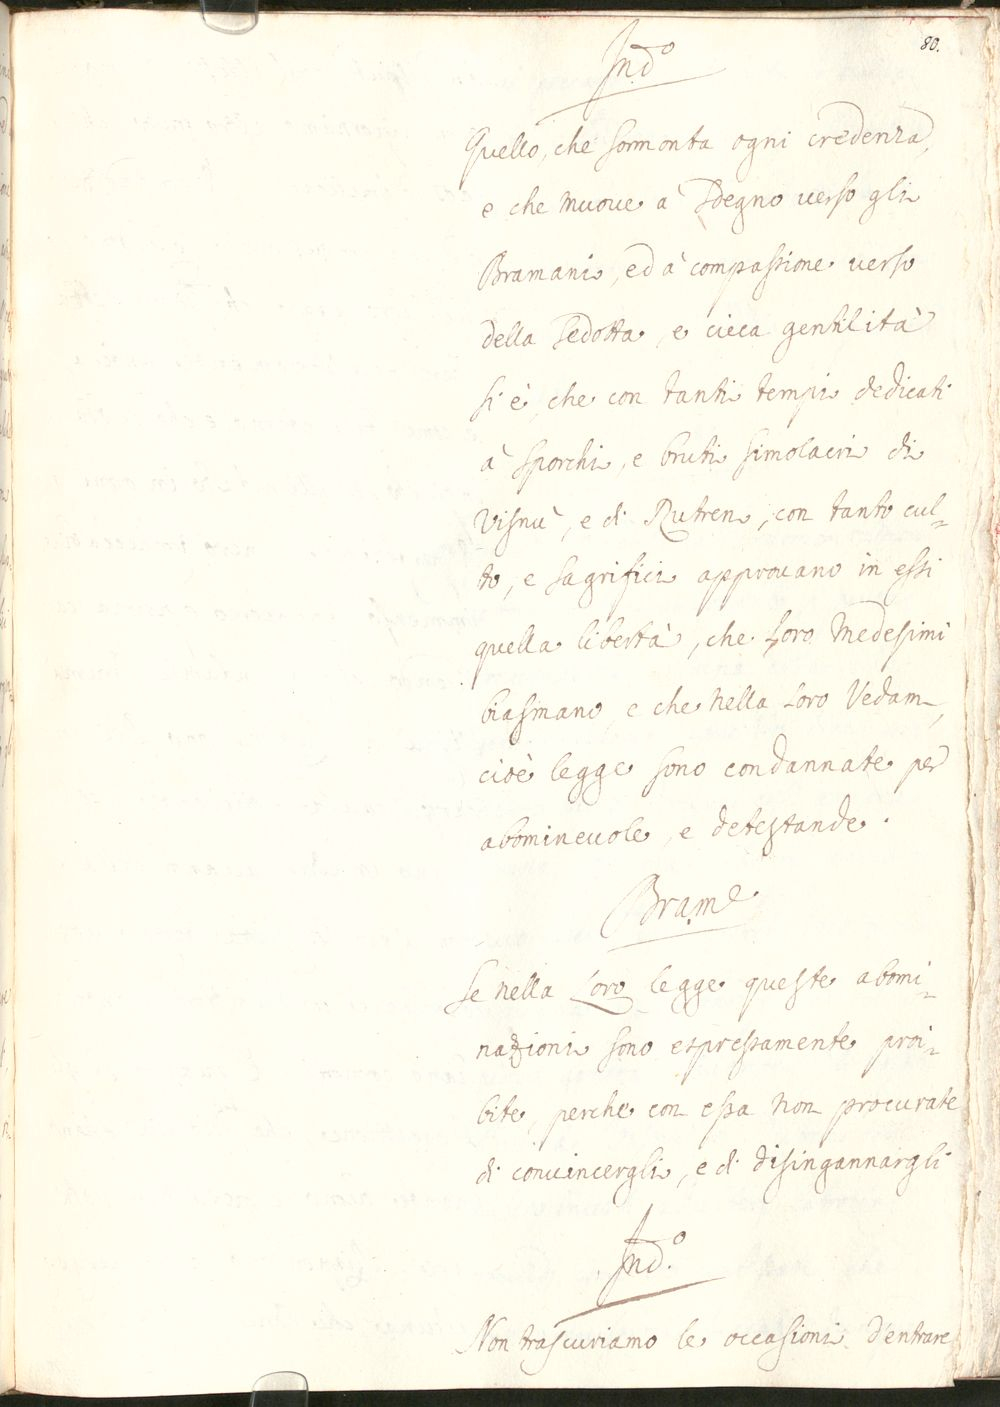 80.
Ind.º
Quello, che sormonta ogni credenza,
e che muove à sdegno verso gli
Bramani, ed à compassione verso
della sedotta, e cieca gentilità
si è, che con tanti tempi dedicati
à sporchi, e bruti simolacri di
Visnù, e di Rutren, con tanto cul-
to, e sagrifici approvano in essi
quella libertà, che loro medesimi
biasmano, e che nella loro Vedam,
cioè legge sono condannate per
abominevole, e detestande.
Brame.
Se nella loro legge queste abomi-
nazioni sono espressamente proi-
bite, perche con essa non procurate
di convincergli, e di disingannargli
Ind.º
Non trascuriamo le occasioni d'entrare